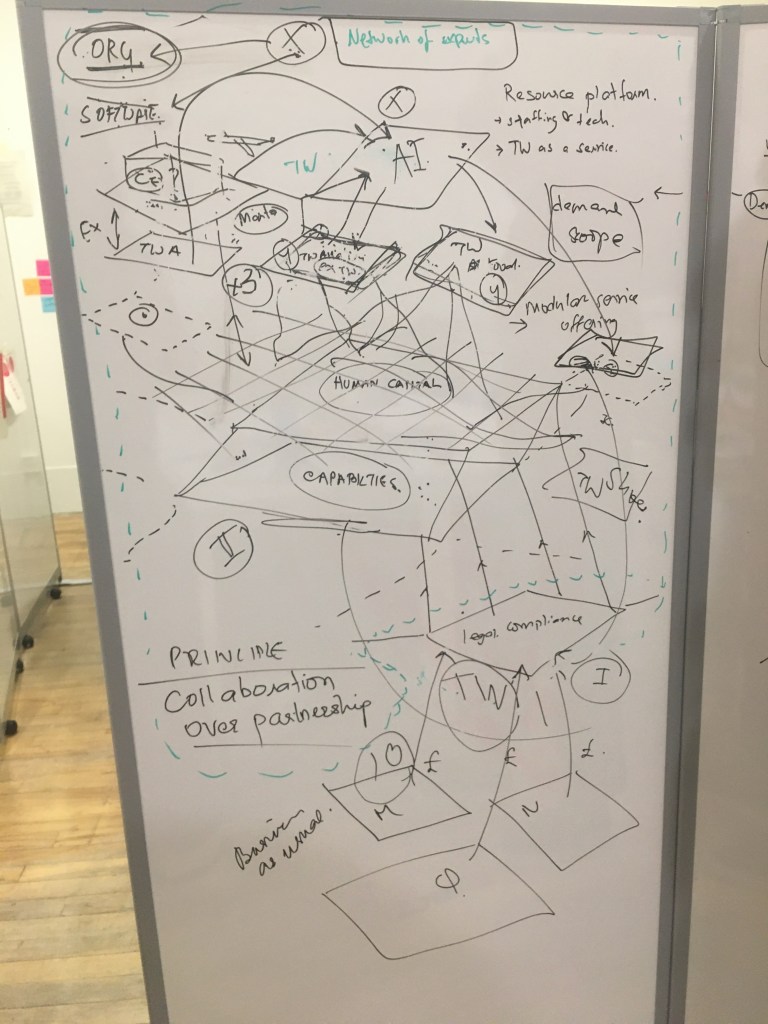 ORG
X
Network of experts
SOFTWARE
X
Resource platform.
→ staffing & tech.
→ TW as a service.
TW
AI
CE ?
demand
scope
Ex
TWA
TW
Y
Y
EX TW
+3
Modular service
offering
HUMAN CAPITAL
CAPABILTIES
II
legal compliance
PRINCIPLE
Collaboration
over partnership
TW
I
10
£
£
£.
M
N
Business
as usual.
φ